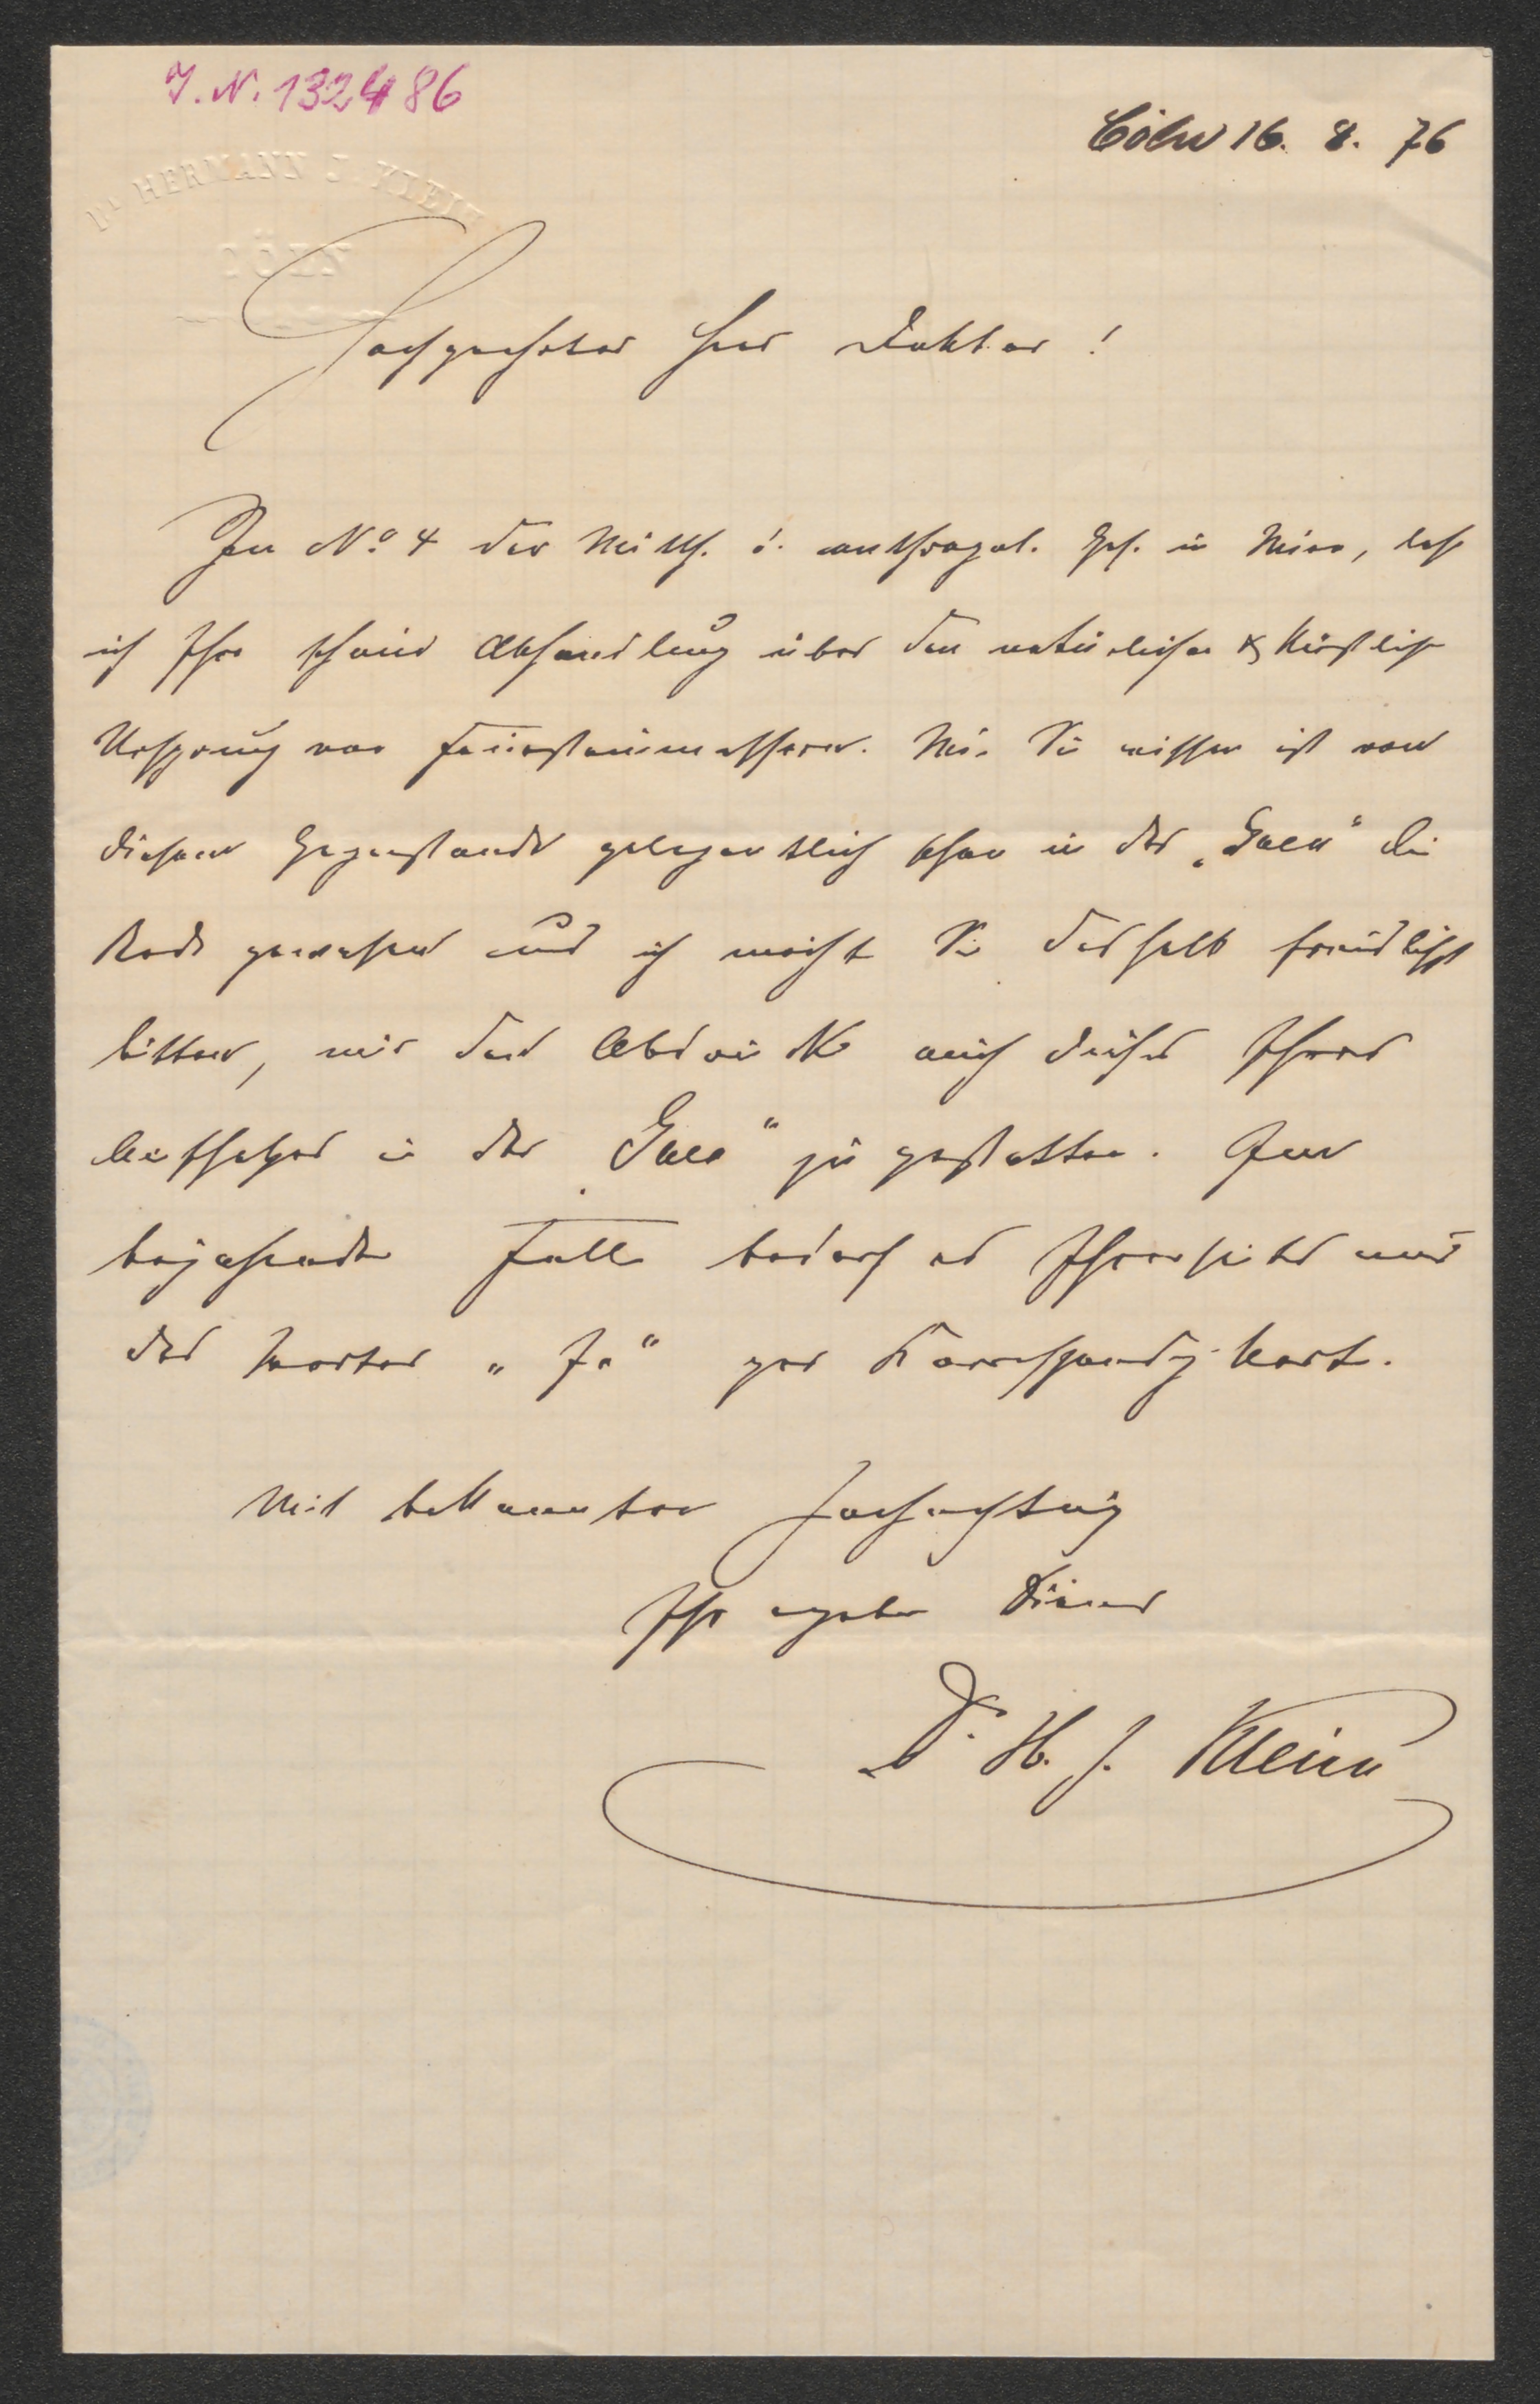 J. N. 132486
Cöln 16. 8. 76
Dr. HERMANN J. KLEIN
CÖLN
Hochgeehrter Herr Doktor!
In No. 4 der Mitth. d. anthropol. Ges. in Wien, lese
ich Ihre schöne Abhandlung über den natürlichen & künstlichen
Ursprung von Feuersteinmessern. Wie Sie wissen ist von
diesem Gegenstande gelegentlich schon in der „Gaea" die
Rede gewesen und ich möchte Sie deshalb freundlichst
bitten, mir den Abdruck auch dieses Ihres
Aufsatzes in der „Gaea" zu gestatten. Im
bejahenden Falle bedarf es Ihrerseits nur
des Wortes „Ja" per Korrespondz-Karte.
Mit bekannter Hochachtung
Ihr ergebener Diener
Dr. H. J. Klein